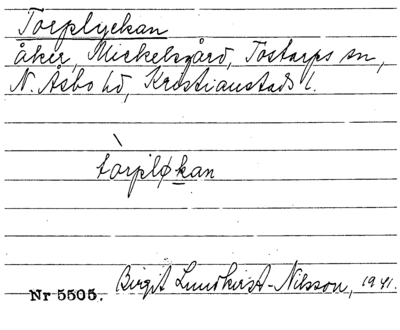 Torplyckan
åker, Mickelsgård, Tostarps sn,
N. Åsbo hd, Kristianstads l.
tòrpløkan
Nr 5505. Birgit Lundkvist-Nilsson, 1941.